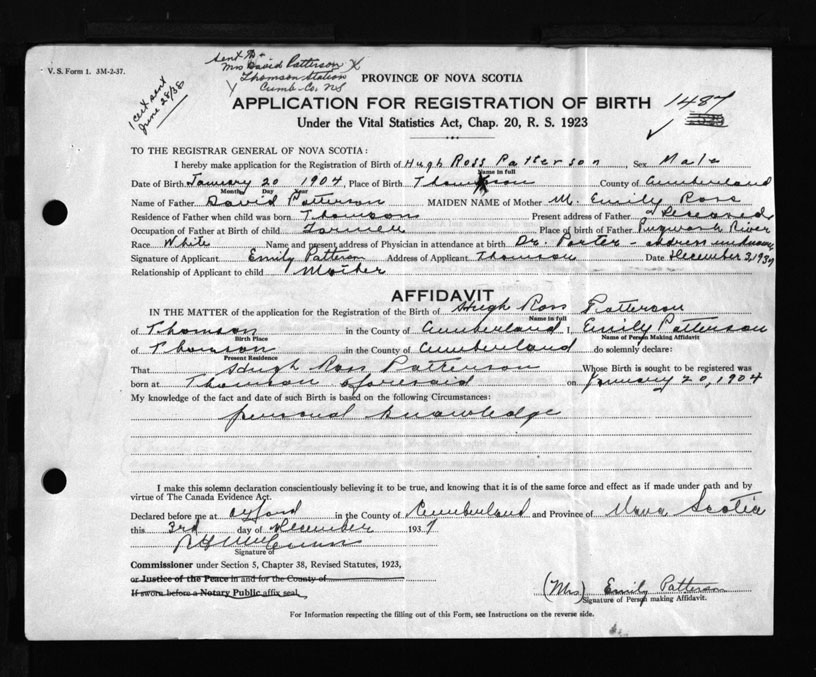 V. S. Form 1. 3M-2-37.
Sent to -
Mrs David Patterson X
Thomson Station
Cumb. Co. NS
1 cert sent
June 28/38
PROVINCE OF NOVA SCOTIA
APPLICATION FOR REGISTRATION OF BIRTH 1487
Under the Vital Statistics Act, Chap. 20, R. S. 1923
TO THE REGISTRAR GENERAL OF NOVA SCOTIA:
I hereby make application for the Registration of Birth of Hugh Ross Patterson, Sex Male
Name in full
Date of Birth January 20 1904, Place of Birth Thomson County of Cumberland
Month Day Year
Name of Father David Patterson MAIDEN NAME of Mother M. Emily Ross
Residence of Father when child was born Thomson Present address of Father Deceased
Occupation of Father at Birth of child Farmer Place of birth of Father Pugwash River
Race White Name and present address of Physician in attendance at birth Dr. Porter - address unknown
Signature of Applicant Emily Patterson Address of Applicant Thomson Date December 3, 1937
Relationship of Applicant to child Mother
AFFIDAVIT
IN THE MATTER of the application for the Registration of the Birth of Hugh Ross Patterson
Name in full
of Thomson in the County of Cumberland I, Emily Patterson
Birth Place Name of Person Making Affidavit
of Thomson in the County of Cumberland do solemnly declare:
Present Residence
That Hugh Ross Patterson Whose Birth is sought to be registered was
born at Thomson aforesaid on January 20, 1904
My knowledge of the fact and date of such Birth is based on the following Circumstances:
personal knowledge
I make this solemn declaration conscientiously believing it to be true, and knowing that it is of the same force and effect as if made under oath and by
virtue of The Canada Evidence Act.
Declared before me at Oxford in the County of Cumberland and Province of Nova Scotia
this 3rd day of December 1937
Signature of
Commissioner under Section 5, Chapter 38, Revised Statutes, 1923,
or Justice of the Peace in and for the County of
If sworn before a Notary Public affix seal.
(Mrs) Emily Patterson
Signature of Person making Affidavit.
For Information respecting the filling out of this Form, see Instructions on the reverse side.